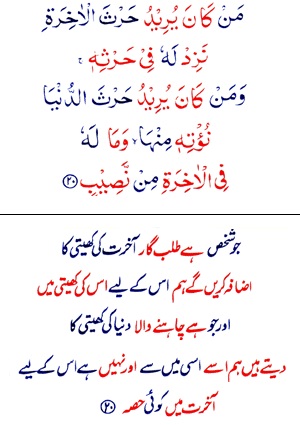 مَنۡ كَانَ يُرِيۡدُ حَرۡثَ الۡاٰخِرَةِ
نَزِدۡ لَهٗ فِىۡ حَرۡثِهٖ‌ۚ
وَمَنۡ كَانَ يُرِيۡدُ حَرۡثَ الدُّنۡيَا
نُؤۡتِهٖ مِنۡهَا ۙ وَمَا لَهٗ
فِى الۡاٰخِرَةِ مِنۡ نَّصِيۡبٍ‏ ﴿۲۰﴾
جو شخص ہے طلب گار آخرت کی کھیتی کا
اضافہ کریں گے ہم اس کے لیے اس کی کھیتی میں
اور جو ہے چاہنے والا دنیا کی کھیتی کا
دیتے ہیں ہم اسے اسی میں سے اور نہیں ہے اس کے لیے
آخرت میں کوئی حصہ ﴿۲۰﴾